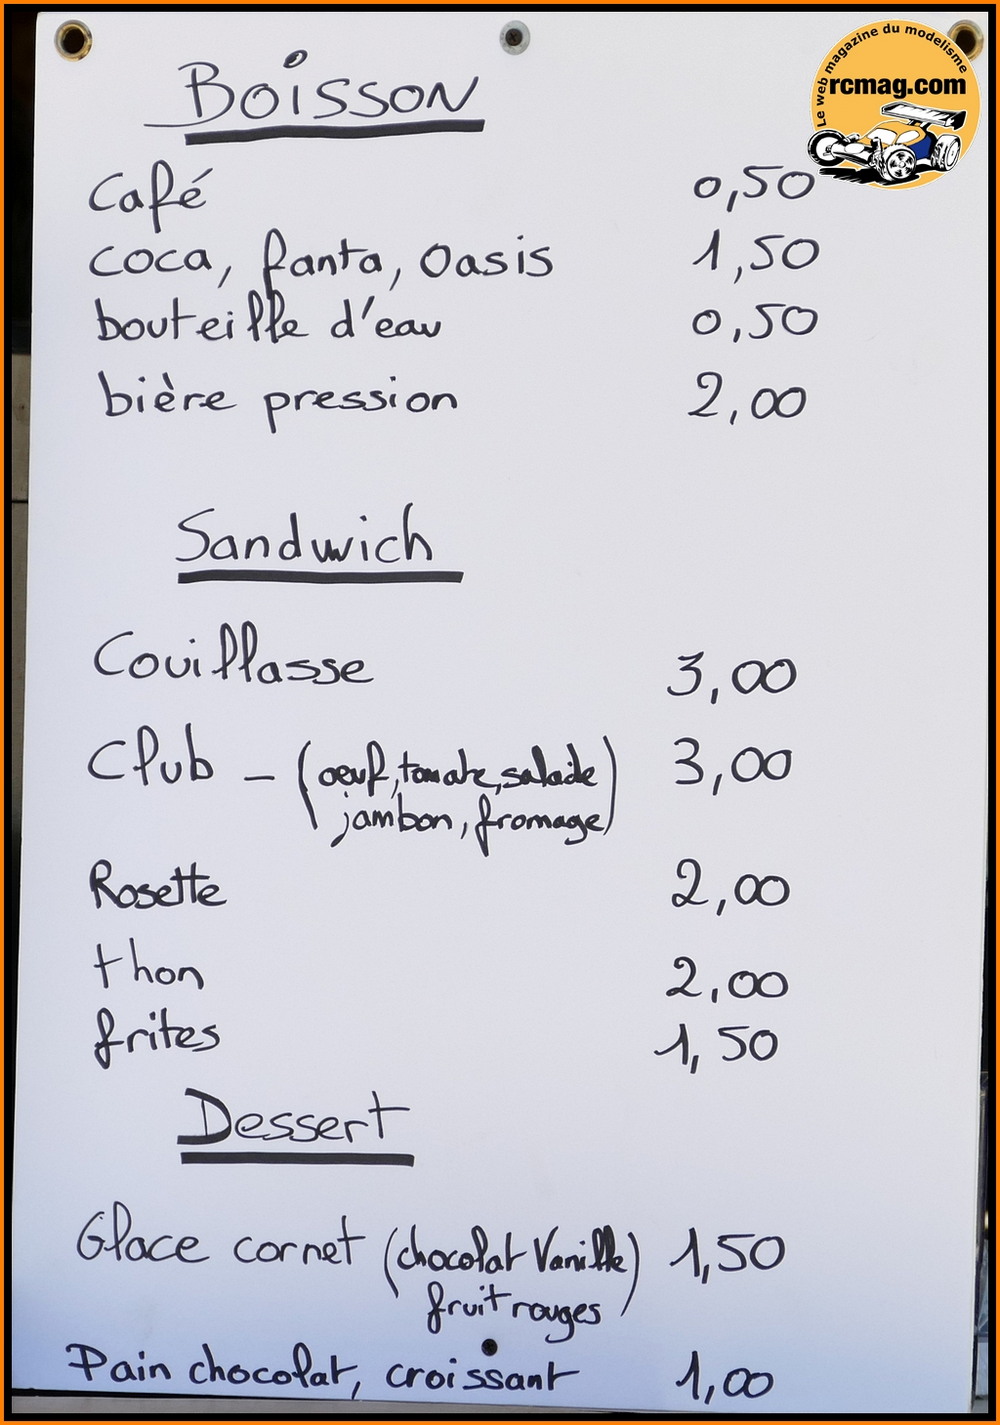 Le web magazine du modelisme
rcmag.com
BOISSON
Café 0,50
coca, fanta, Oasis 1,50
bouteille d'eau 0,50
bière pression 2,00
Sandwich
Couillasse 3,00
Club - (oeuf, tomate, salade 3,00
jambon, fromage)
Rosette 2,00
thon 2,00
frites 1,50
Dessert
Glace cornet (chocolat Vanille) 1,50
fruit rouges
Pain chocolat, croissant 1,00